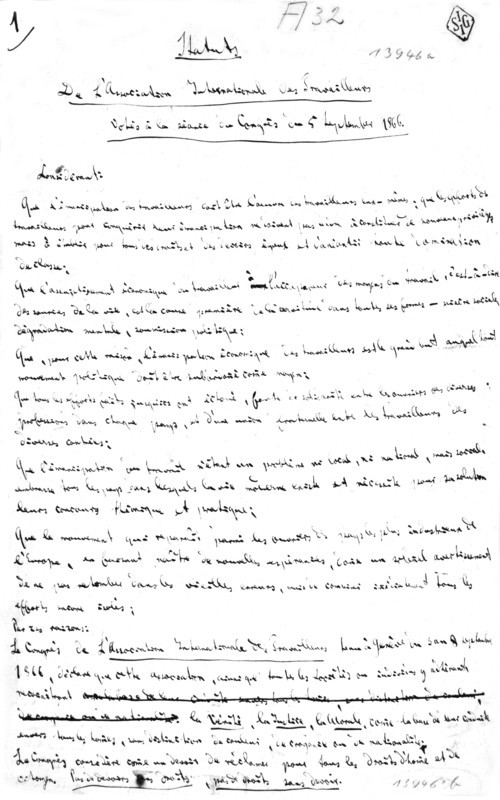 1/
A 32
SIG
13946a
Statuts
De L'Association Internationale des Travailleurs
Votés à la séance du Congrès du 5 Septembre 1866.
Considérant:
Que l'émancipation des travailleurs doit être l'œuvre des travailleurs eux-mêmes; que les efforts des
travailleurs pour conquérir leur émancipation ne doivent pas à constituer de nouveaux privilèges
mais à établir pour tous des droits et des devoirs égaux et d'anéantir toute domination
de classe;
Que l'assujettissement économique du travailleur à des moyens du travail, c'est à dire
des sources de la vie, est la cause première de la servitude dans toutes ses formes – misère sociale,
dégradation mentale, soumission politique;
Que, pour cette raison, l'émancipation économique des travailleurs est le grand but auquel tout
mouvement politique doit être subordonné comme moyen;
Que tous les efforts faits jusqu'ici ont échoué, faute de solidarité entre les ouvriers des diverses
professions dans chaque pays, et d'une union fraternelle entre les travailleurs des
diverses contrées;
Que l'émancipation du travail n'étant un problème ni local, ni national, mais social,
embrasse tous les pays dans lesquels la vie moderne existe et nécessite pour sa solution
leurs concours théorique et pratique;
Que le mouvement qui reparaît parmi les ouvriers des pays les plus industrieux de
l'Europe, en faisant naître de nouvelles espérances, donne un solennel avertissement
de ne pas retomber dans les vieilles erreurs, mais de combiner tous les
efforts encore isolés;
Par ces raisons:
Le Congrès de L'Association Internationale des Travailleurs tenu à Genève en Septembre
1866, déclare que cette association, ainsi que toutes les Sociétés ou individus y adhérant
reconnaîtront
la Vérité, la Justice, la Morale, comme la base de leur conduite
envers tous les hommes, sans distinction de couleur, de croyance ou de nationalité.
Le Congrès considère comme un devoir de réclamer pour tous les droits d'homme et de
citoyen. Pas de devoirs sans droits, pas de droits sans devoir.
13946b